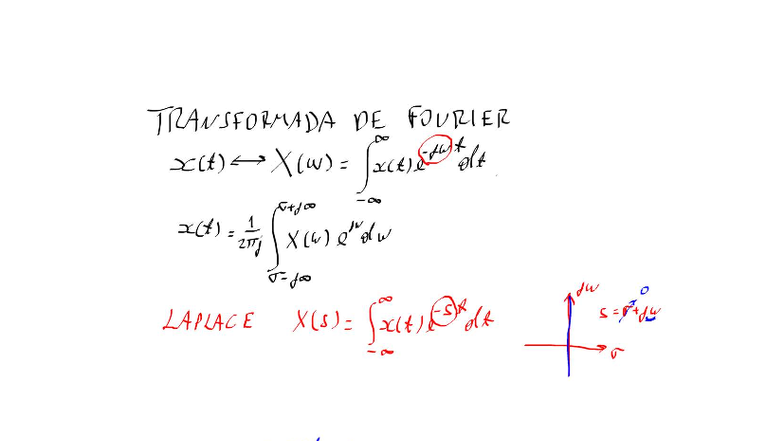 TRANSFORMADA DE FOURIER
x(t) ↔ X(ω) = ∫_{-∞}^{∞} x(t) e^{-jωt} dt
x(t) = 1/2πj ∫_{σ-j∞}^{σ+j∞} X(ω) e^{jω} dω
LAPLACE X(s) = ∫_{-∞}^{∞} x(t) e^{-st} dt
jω
0
s = σ + jω
σ